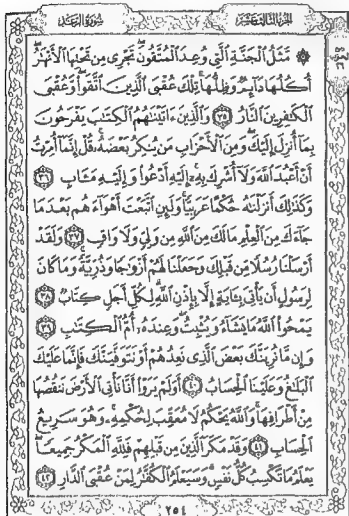 سُورَةُ الرَّعْدِ
الجزء الثالث عشر
۞ مَّثَلُ الْجَنَّةِ الَّتِي وُعِدَ الْمُتَّقُونَ تَجْرِي مِن تَحْتِهَا الْأَنْهَٰرُ
أُكُلُهَا دَآئِمٌ وَظِلُّهَا تِلْكَ عُقْبَى الَّذِينَ اتَّقَوا وَّعُقْبَى
الْكَٰفِرِينَ النَّارُ ٣٥ وَالَّذِينَ ءَاتَيْنَٰهُمُ الْكِتَٰبَ يَفْرَحُونَ
بِمَآ أُنزِلَ إِلَيْكَ وَمِنَ الْأَحْزَابِ مَن يُنكِرُ بَعْضَهُ قُلْ إِنَّمَآ أُمِرْتُ
أَنْ أَعْبُدَ اللَّهَ وَلَآ أُشْرِكَ بِهِ إِلَيْهِ أَدْعُوا وَإِلَيْهِ مَـَٔابِ ٣٦
وَكَذَٰلِكَ أَنزَلْنَٰهُ حُكْمًا عَرَبِيًّا وَلَئِنِ اتَّبَعْتَ أَهْوَآءَهُم بَعْدَمَا
جَآءَكَ مِنَ الْعِلْمِ مَالَكَ مِنَ اللَّهِ مِن وَلِيٍّ وَلَا وَاقٍ ٣٧ وَلَقَدْ
أَرْسَلْنَا رُسُلًا مِّن قَبْلِكَ وَجَعَلْنَا لَهُمْ أَزْوَٰجًا وَذُرِّيَّةً وَمَا كَانَ
لِرَسُولٍ أَن يَأْتِيَ بِـَٔايَةٍ إِلَّا بِإِذْنِ اللَّهِ لِكُلِّ أَجَلٍ كِتَابٌ ٣٨
يَمْحُوا اللَّهُ مَا يَشَآءُ وَيُثْبِتُ وَعِندَهُ أُمُّ الْكِتَٰبِ ٣٩
وَإِن مَّا نُرِيَنَّكَ بَعْضَ الَّذِي نَعِدُهُمْ أَوْ نَتَوَفَّيَنَّكَ فَإِنَّمَا عَلَيْكَ
الْبَلَٰغُ وَعَلَيْنَا الْحِسَابُ ٤٠ أَوَلَمْ يَرَوْا أَنَّا نَأْتِي الْأَرْضَ نَنقُصُهَا
مِنْ أَطْرَافِهَا وَاللَّهُ يَحْكُمُ لَا مُعَقِّبَ لِحُكْمِهِ وَهُوَ سَرِيعُ
الْحِسَابِ ٤١ وَقَدْ مَكَرَ الَّذِينَ مِن قَبْلِهِمْ فَلِلَّهِ الْمَكْرُ جَمِيعًا
يَعْلَمُ مَا تَكْسِبُ كُلُّ نَفْسٍ وَسَيَعْلَمُ الْكُفَّٰرُ لِمَنْ عُقْبَى الدَّارِ ٤٢
٢٥٤